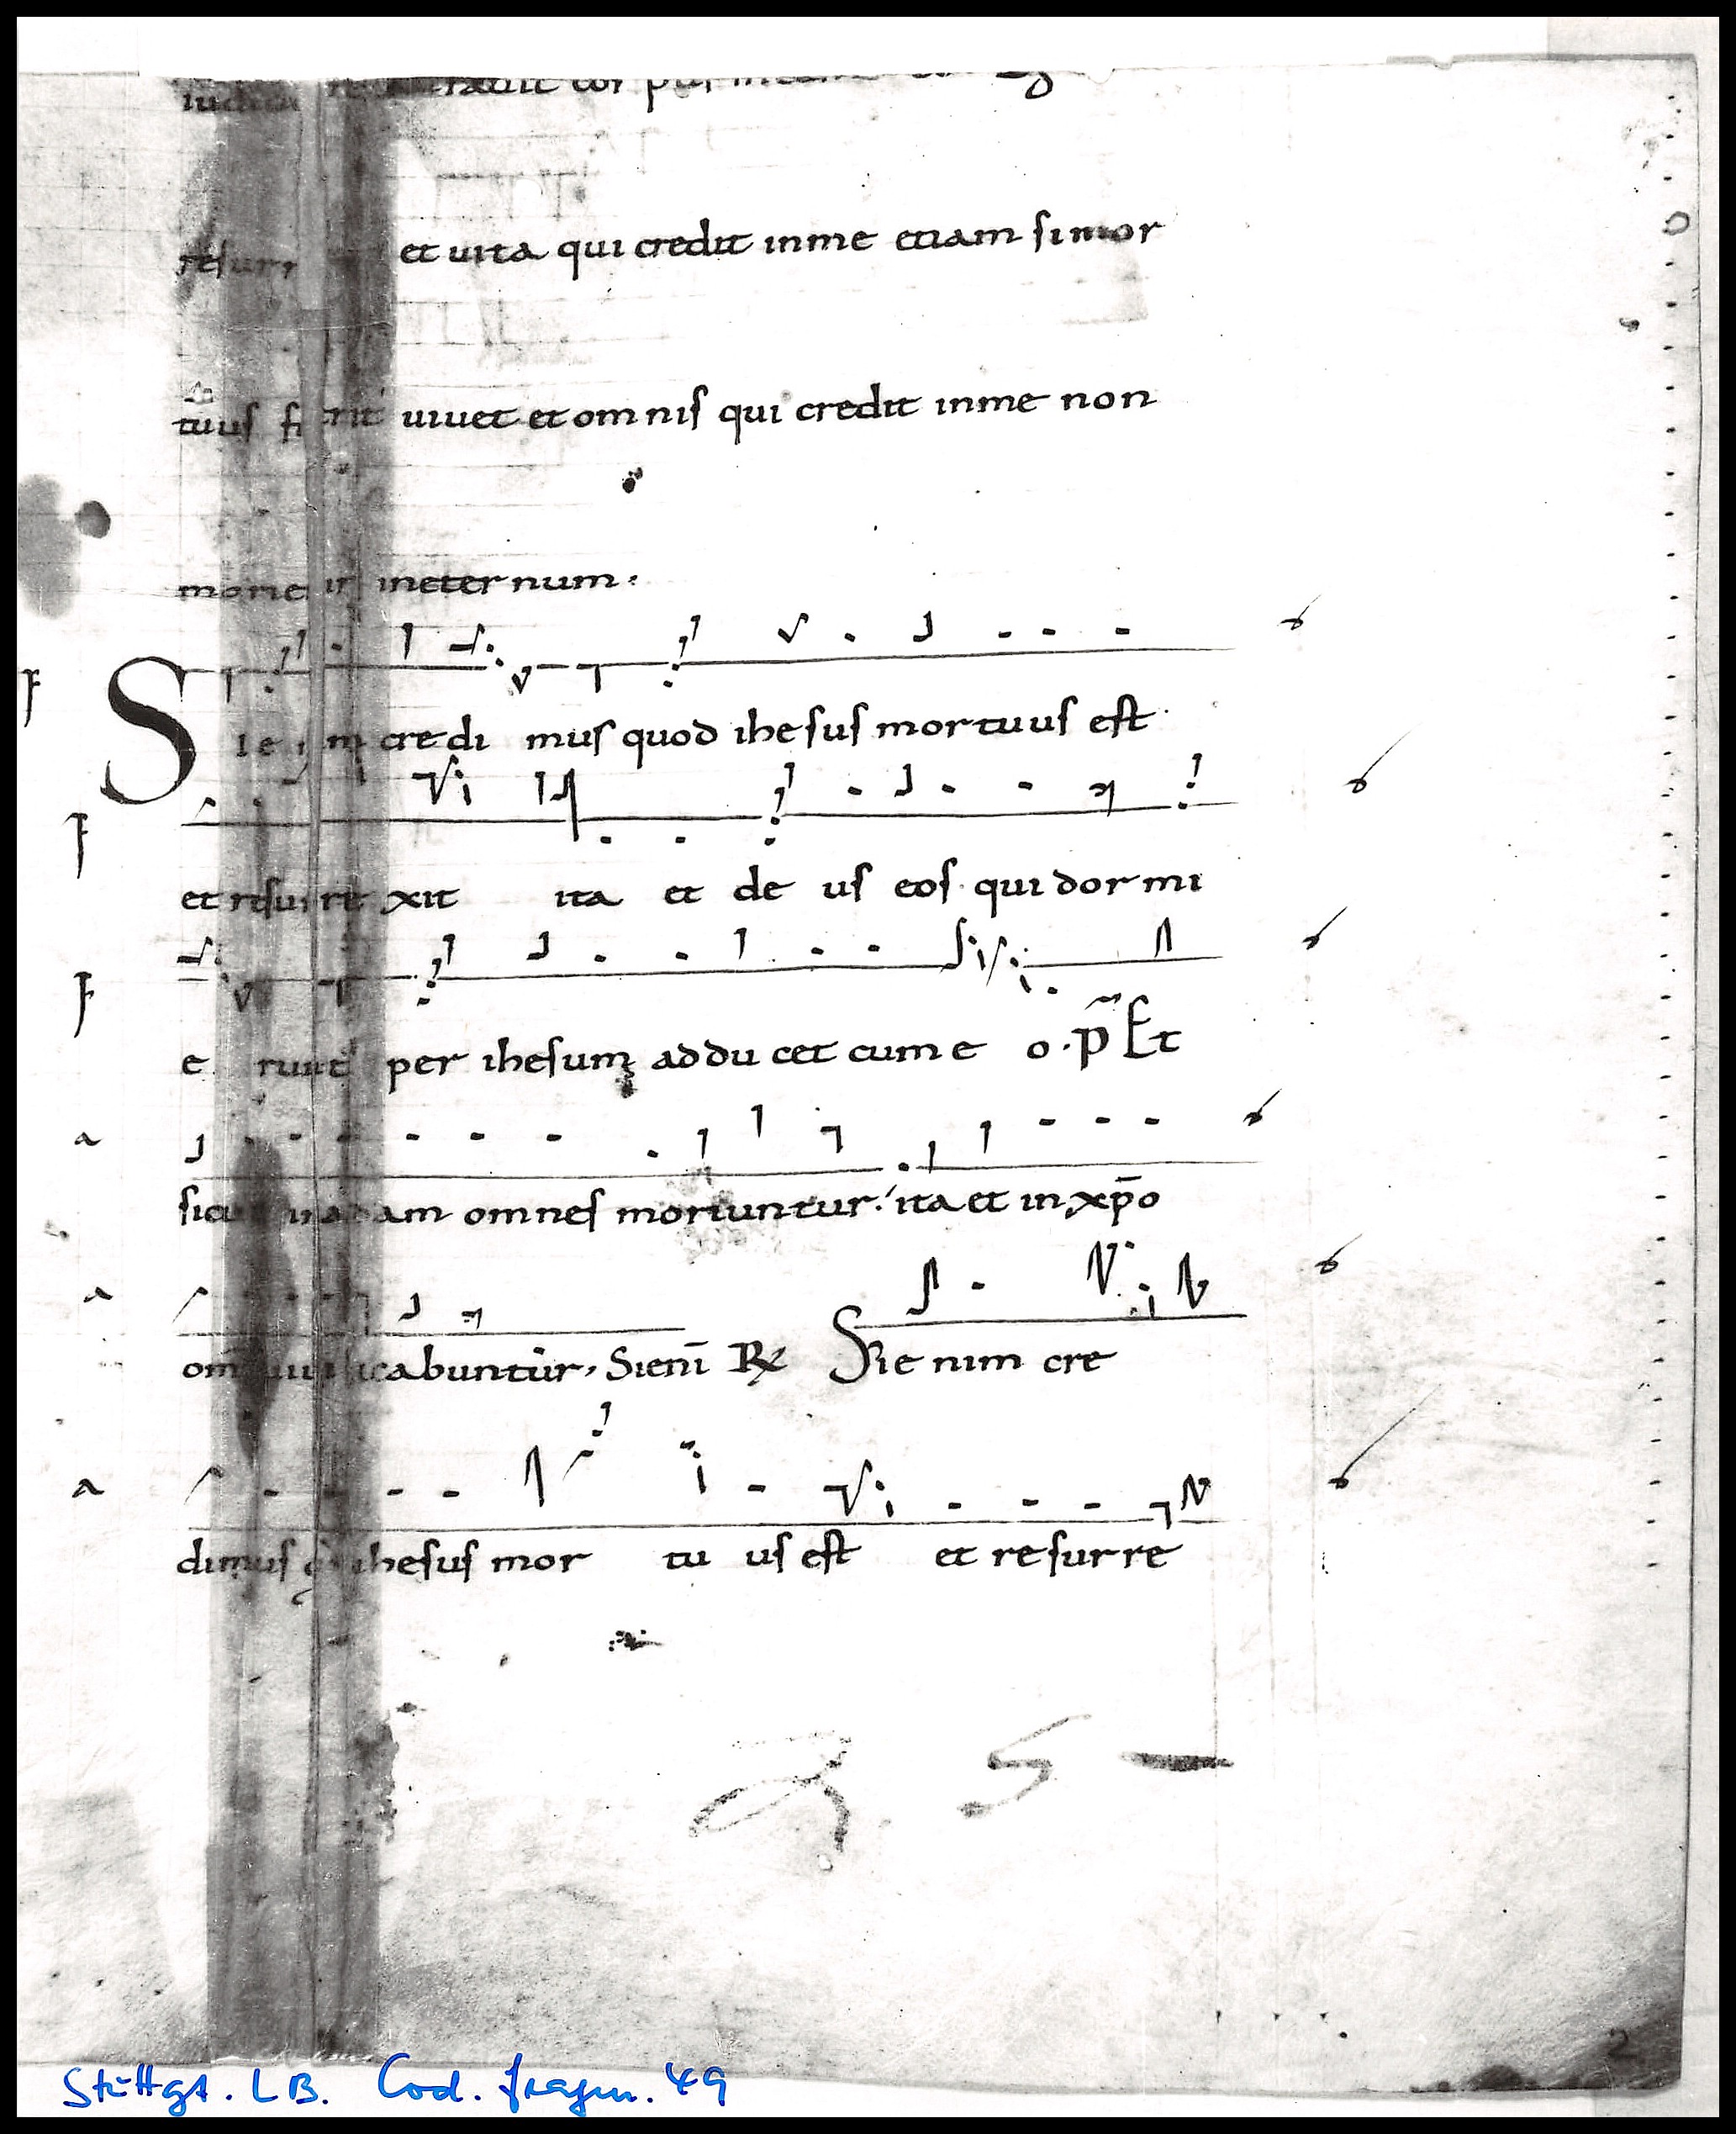 et uita qui credit inme etiam simor
tuus uiuet et omnis qui credit inme non
ineternum.
S ic credi mus quod ihesus mortuus est
et xit ita et de us eos qui dormi
e runt per ihesum adducet cum e o. P̃ Et
in adam omnes moriuntur. ita et in xp̄o
cabuntur, Sienī ℟ Sic enim cre
dimus ihesus mor tu us est et resurre
25 -
2
Stuttgt. LB. Cod. fragm. 49